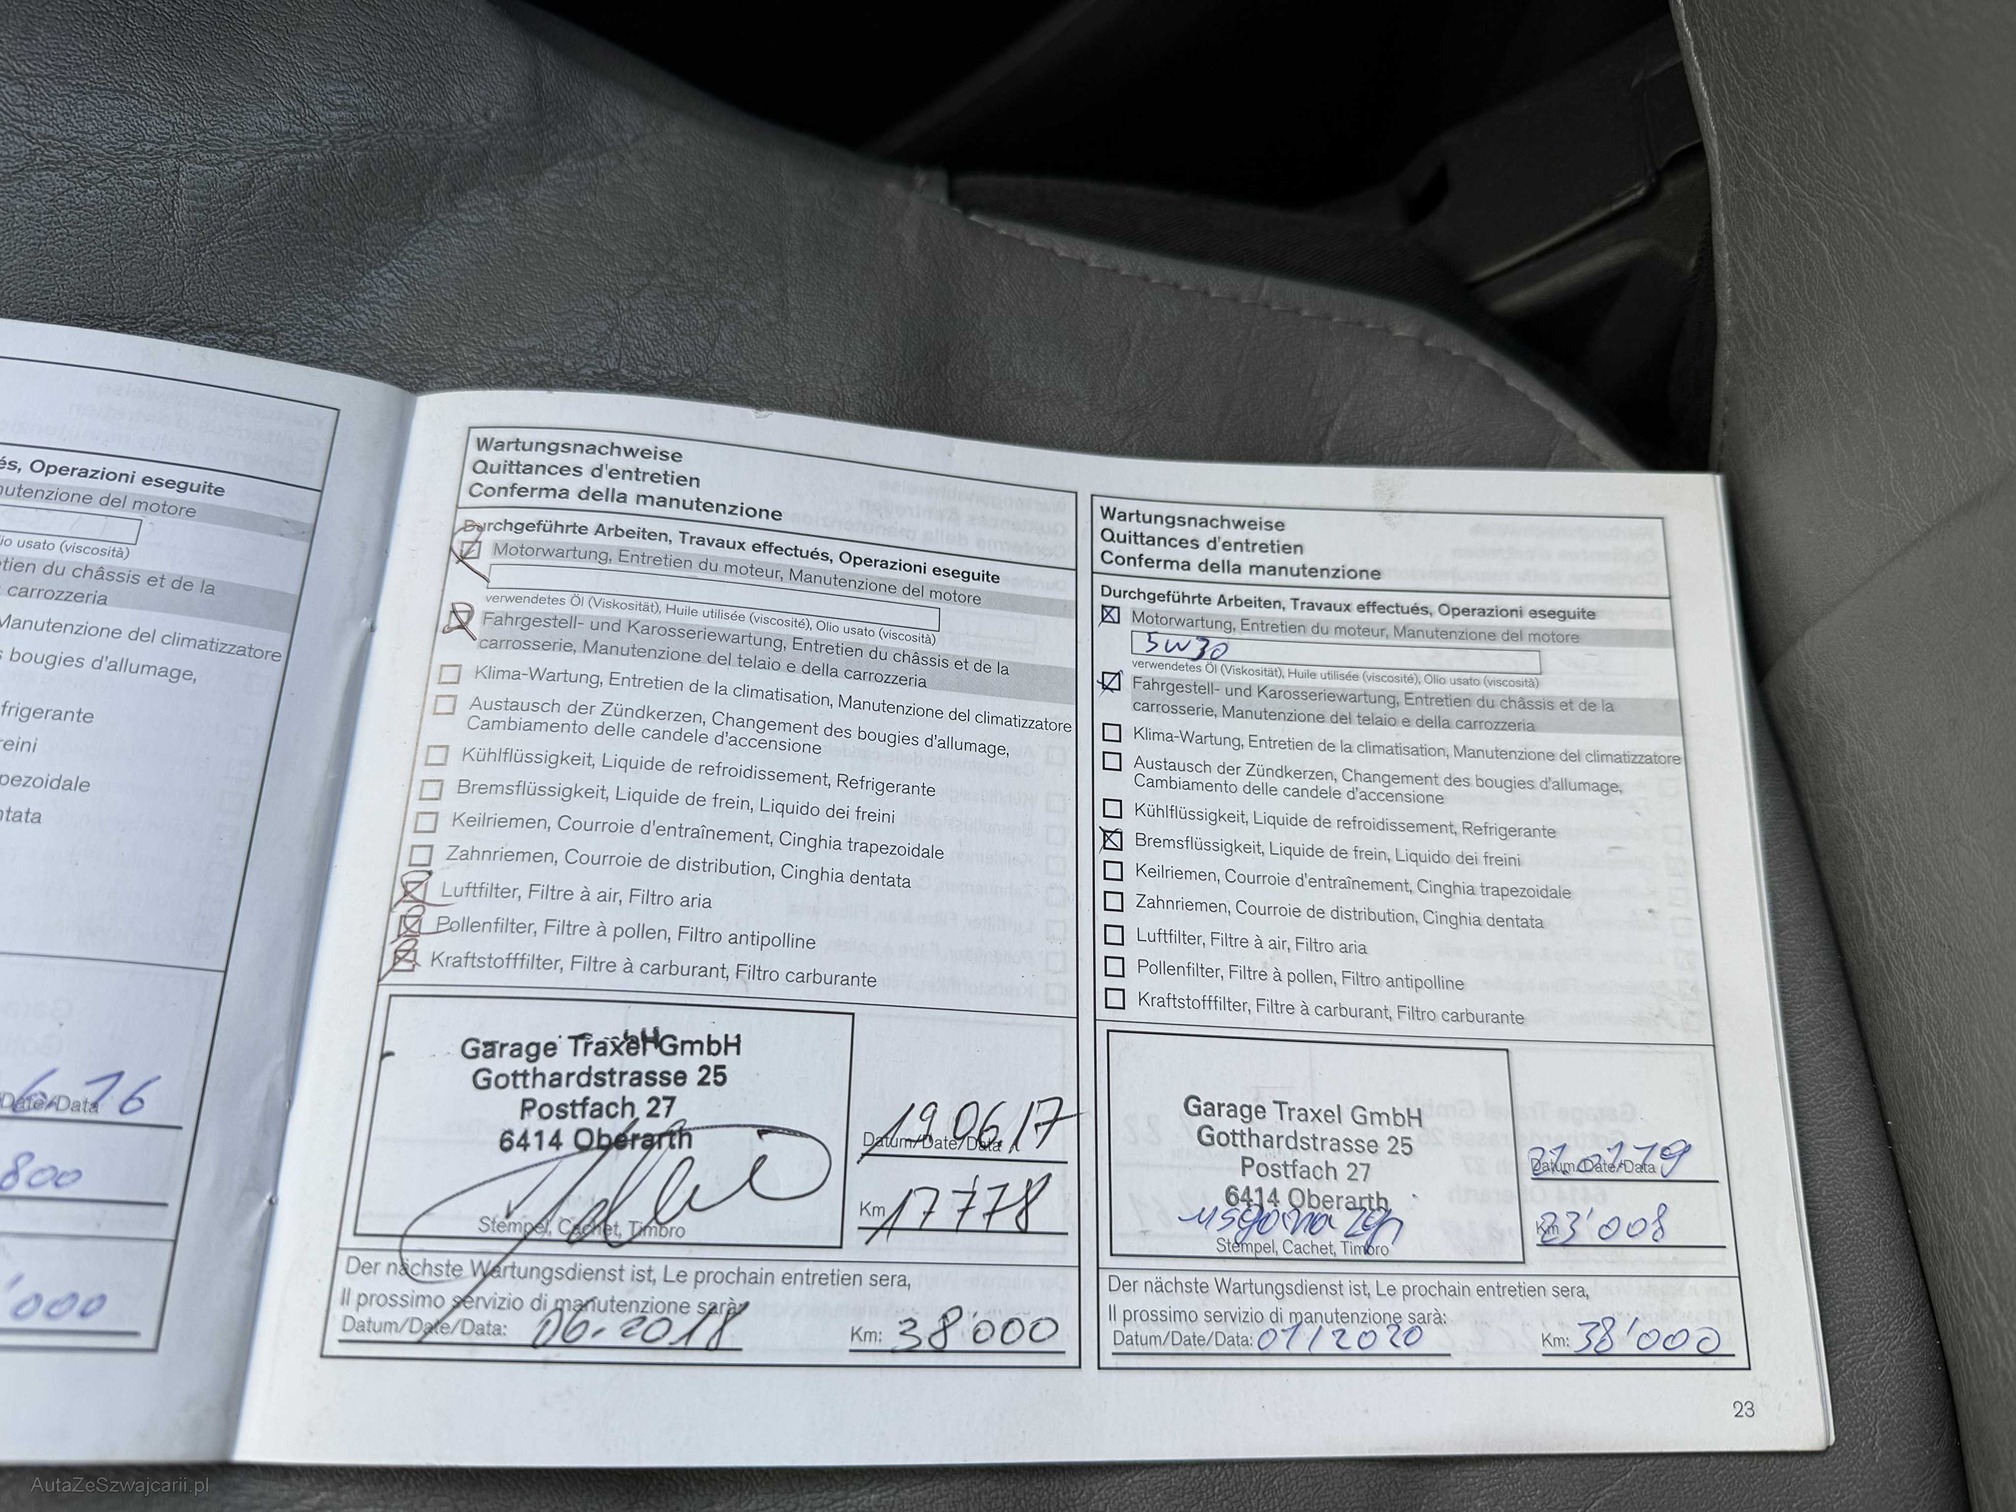 és, Operazioni eseguite
nutenzione del motore
io usato (viscosità)
tien du châssis et de la
carrozzeria
Manutenzione del climatizzatore
s bougies d'allumage,
frigerante
reini
pezoidale
ntata
Date/Data
6 16
800
'000
Wartungsnachweise
Quittances d'entretien
Conferma della manutenzione
Durchgeführte Arbeiten, Travaux effectués, Operazioni eseguite
Motorwartung, Entretien du moteur, Manutenzione del motore
verwendetes Öl (Viskosität), Huile utilisée (viscosité), Olio usato (viscosità)
Fahrgestell- und Karosseriewartung, Entretien du châssis et de la
carrosserie, Manutenzione del telaio e della carrozzeria
Klima-Wartung, Entretien de la climatisation, Manutenzione del climatizzatore
Austausch der Zündkerzen, Changement des bougies d'allumage,
Cambiamento delle candele d'accensione
Kühlflüssigkeit, Liquide de refroidissement, Refrigerante
Bremsflüssigkeit, Liquide de frein, Liquido dei freini
Keilriemen, Courroie d'entraînement, Cinghia trapezoidale
Zahnriemen, Courroie de distribution, Cinghia dentata
Luftfilter, Filtre à air, Filtro aria
Pollenfilter, Filtre à pollen, Filtro antipolline
Kraftstofffilter, Filtre à carburant, Filtro carburante
Garage Traxel GmbH
Gotthardstrasse 25
Postfach 27
6414 Oberarth
Stempel, Cachet, Timbro
19.06/17
Datum/Date/Data
Km 17778
Der nächste Wartungsdienst ist, Le prochain entretien sera,
Il prossimo servizio di manutenzione sarà:
Datum/Date/Data: 06.2018 Km: 38'000
Wartungsnachweise
Quittances d'entretien
Conferma della manutenzione
Durchgeführte Arbeiten, Travaux effectués, Operazioni eseguite
Motorwartung, Entretien du moteur, Manutenzione del motore
5W30
verwendetes Öl (Viskosität), Huile utilisée (viscosité), Olio usato (viscosità)
Fahrgestell- und Karosseriewartung, Entretien du châssis et de la
carrosserie, Manutenzione del telaio e della carrozzeria
Klima-Wartung, Entretien de la climatisation, Manutenzione del climatizzatore
Austausch der Zündkerzen, Changement des bougies d'allumage,
Cambiamento delle candele d'accensione
Kühlflüssigkeit, Liquide de refroidissement, Refrigerante
Bremsflüssigkeit, Liquide de frein, Liquido dei freini
Keilriemen, Courroie d'entraînement, Cinghia trapezoidale
Zahnriemen, Courroie de distribution, Cinghia dentata
Luftfilter, Filtre à air, Filtro aria
Pollenfilter, Filtre à pollen, Filtro antipolline
Kraftstofffilter, Filtre à carburant, Filtro carburante
Garage Traxel GmbH
Gotthardstrasse 25
Postfach 27
6414 Oberarth
Stempel, Cachet, Timbro
Datum/Date/Data
Km 23'008
Der nächste Wartungsdienst ist, Le prochain entretien sera,
Il prossimo servizio di manutenzione sarà:
Datum/Date/Data: 01/2020 Km: 38'000
23
AutaZeSzwajcarii.pl